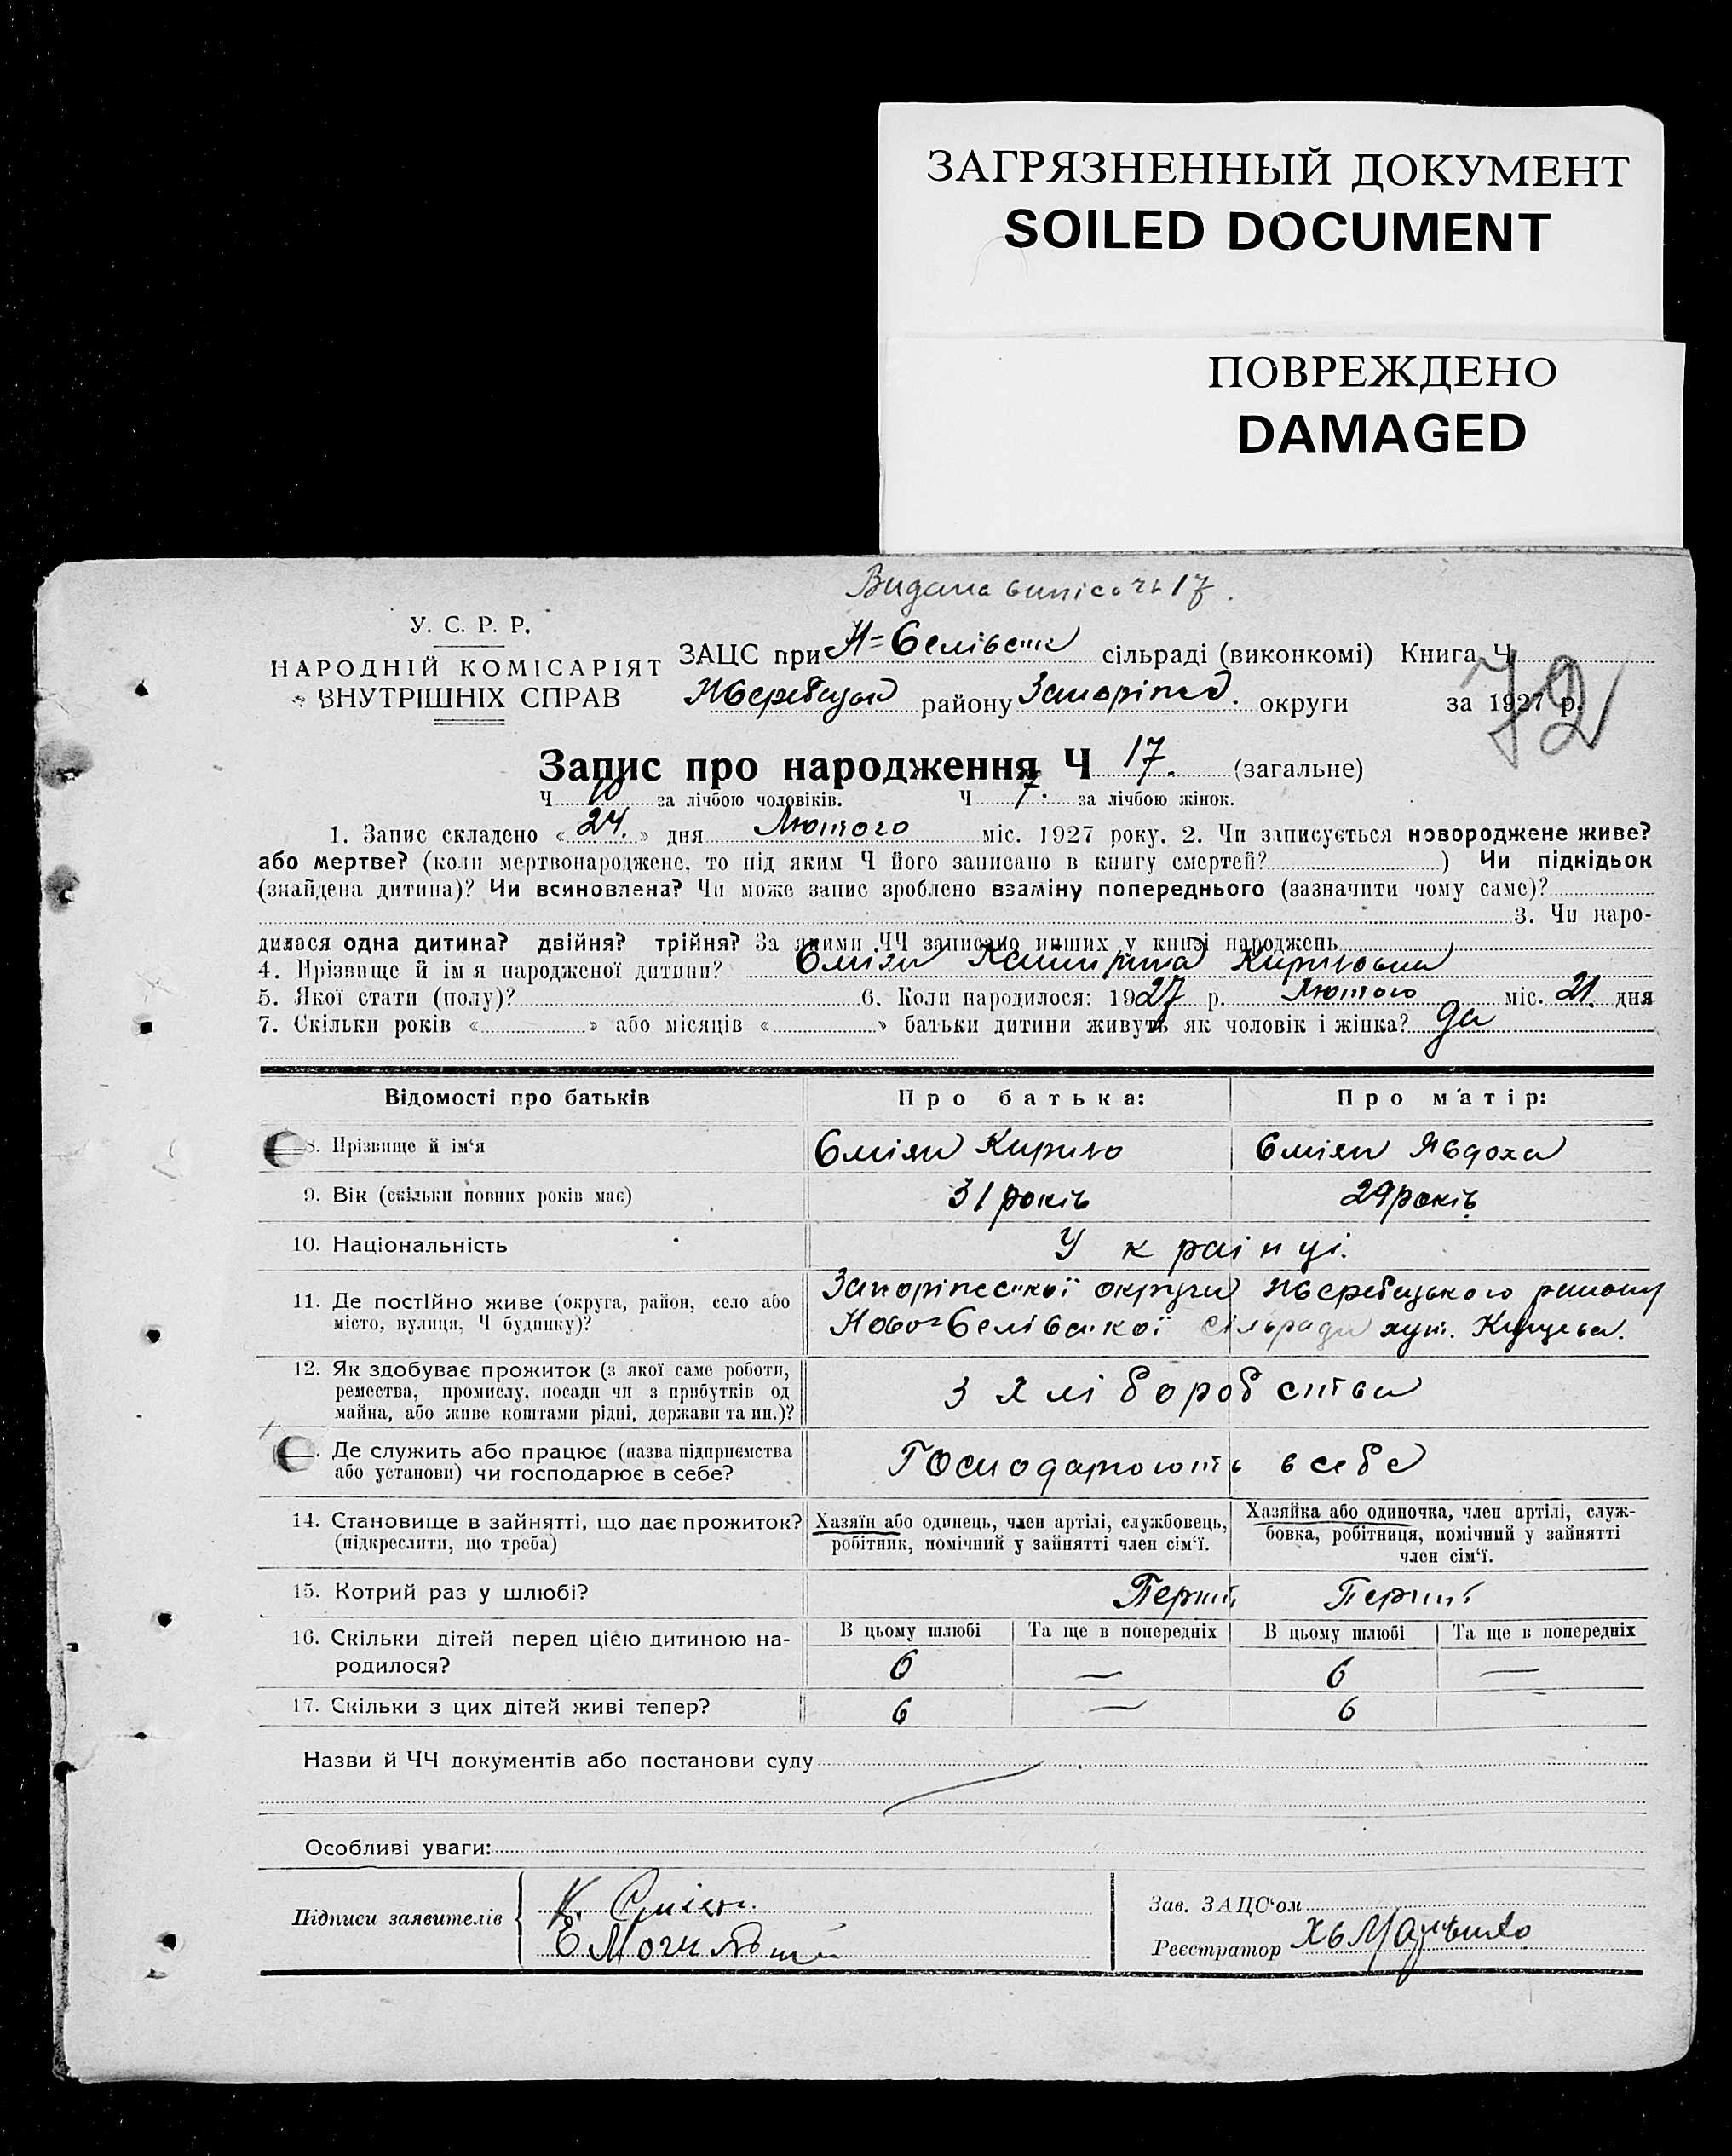 ЗАГРЯЗНЕННЫЙ ДОКУМЕНТ
SOILED DOCUMENT
ПОВРЕЖДЕНО
DAMAGED
Видана виписъ 17.
У. С. Р. Р.
НАРОДНІЙ КОМІСАРІЯТ
ВНУТРІШНІХ СПРАВ
ЗАЦС при сільраді (виконкомі) Книга Ч.
району округи за 1927 р.
72
Запис про народження Ч 17. (загальне)
Ч 10 за лічбою чоловіків. Ч 7. за лічбою жінок.
1. Запис складено « 24. » дня Лютого міс. 1927 року. 2. Чи записується новороджене живе?
або мертве? (коли мертвонароджене, то під яким Ч його записано в книгу смертей? ) Чи підкідьок
(знайдена дитина)? Чи всиновлена? Чи може запис зроблено взаміну попереднього (зазначити чому саме)?
3. Чи наро-
дилася одна дитина? двійня? трійня? За якими ЧЧ записано инших у книзі народжень
4. Прізвище й імя народженої дитини? Кириловна
5. Якої стати (полу)? 6. Коли народилося: 1927 р. Лютого міс. 21. дня
7. Скільки років « » або місяців « » батьки дитини живуть як чоловік і жінка? да
Відомості про батьків Про батька: Про матір:
8. Прізвище й ім‘я Кирило Явдоха
9. Вік (скільки повних років має) 31 років 29 років
10. Національність Украінці.
11. Де постійно живе (округа, район, село або
місто, вулиця, Ч будинку)?
Запоріпської округи Жеребецького району
Ново=Селівської сільради хут.
12. Як здобуває прожиток (з якої саме роботи,
ремества, промислу, посади чи з прибутків од
майна, або живе коштами рідні, держави та ин.)?
З хліборобства
Де служить або працює (назва підприємства
або установи) чи господарює в себе?
Господарюють в себе
14. Становище в зайнятті, що дає прожиток?
(підкреслити, що треба)
Хазяїн або одинець, член артілі, службовець,
робітник, помічний у зайнятті член сім‘ї.
Хазяйка або одиночка, член артілі, служ-
бовка, робітниця, помічний у зайнятті
член сім‘ї.
15. Котрий раз у шлюбі? Перший Перший
16. Скільки дітей перед цією дитиною на-
родилося?
В цьому шлюбі Та ще в попередніх В цьому шлюбі Та ще в попередніх
6 — 6 —
17. Скільки з цих дітей живі тепер? 6 — 6
Назви й ЧЧ документів або постанови суду
Особливі уваги:
Підписи заявителів
Зав. ЗАЦС‘ом
Реєстратор